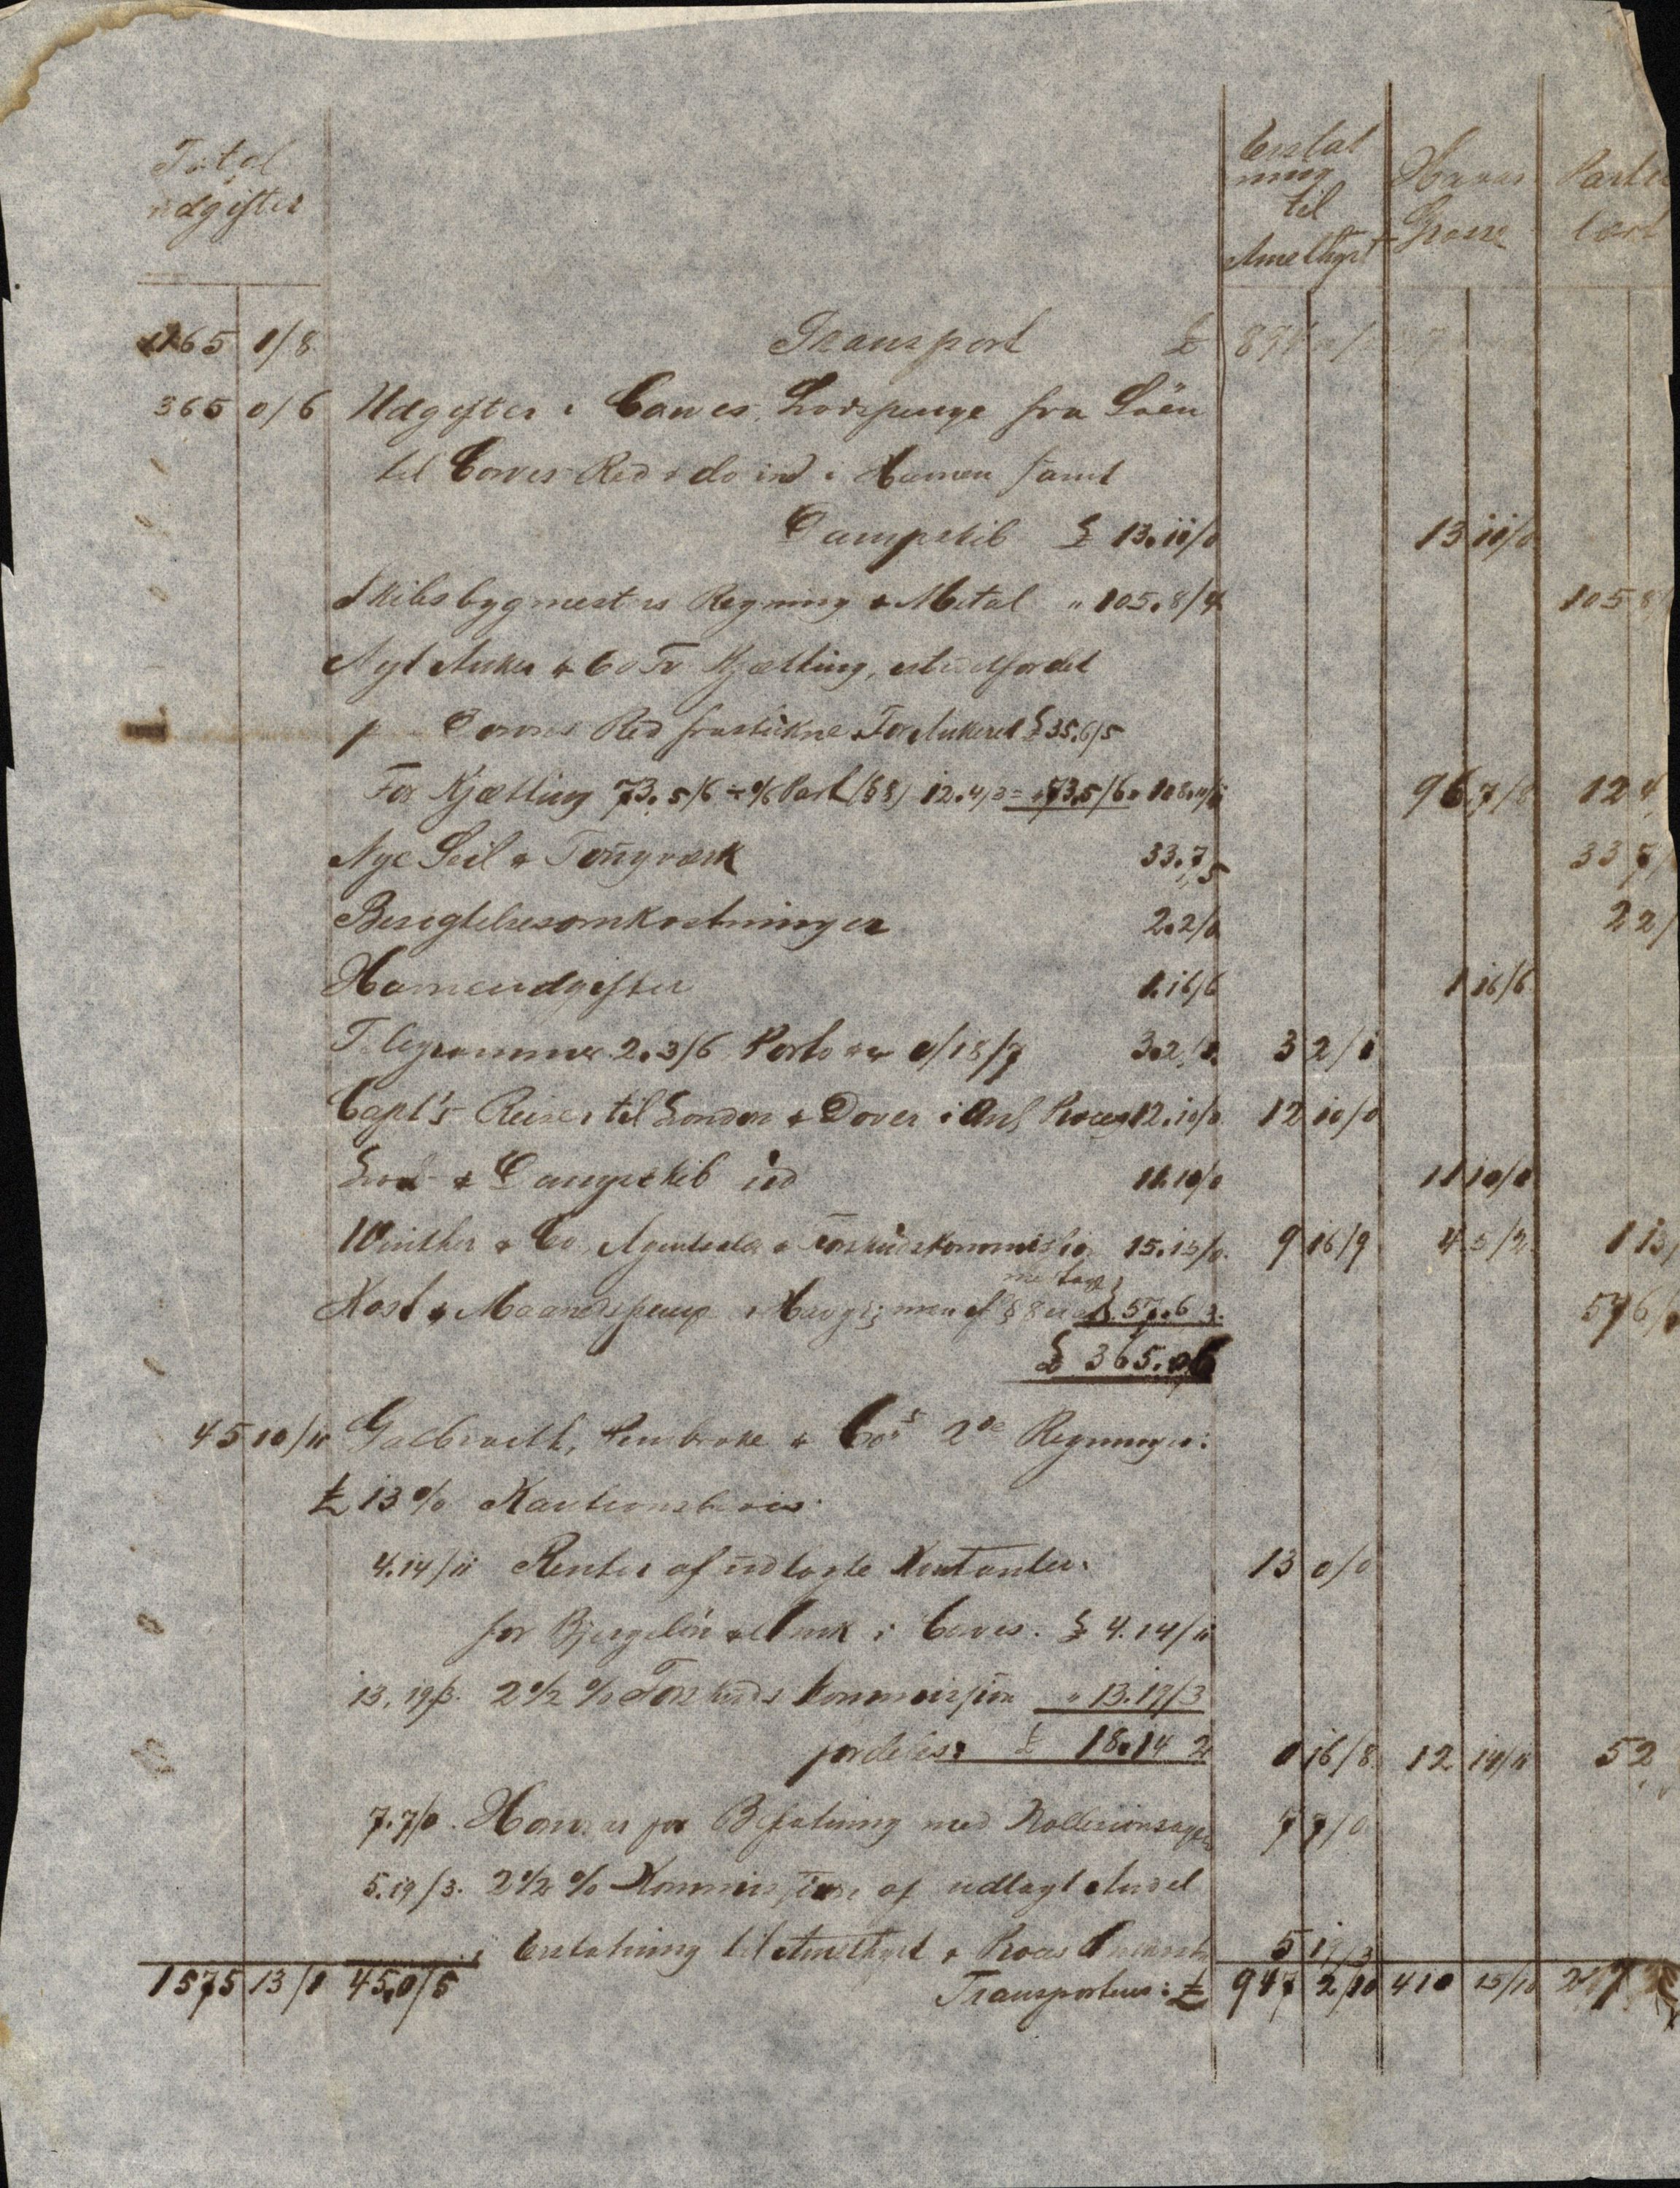 Total Erstat Havar Partic
udgifter ning Grosse lært
til
Amethyst
1165 1/8 Transport £
365 0/6 Udgifter i Cowes, Lodspenge fra Søen
til Cowes Red & do ind i Havnen samt
Dampskib £ 13.11/0 13 11/0
Skibsbygmesters Regning & Metal " 105.8/4 105 8
Nyt Anker & 60 Fv Kjætting, istedetfor det
Cowes Red frastukne. For Ankeret £ 35.6/5
For Kjætting 73.5/6 ÷ 1/6 Part (§8) 12.4/3 = " 73.5/6 " 108.11/11 96 7/8 12 4
Nye Seil & Tougværk 33.7/5 33 7/
Besigtelsesomkostninger 2.2/0 2 2/
Havneudgifter 1.16/6 1 16/6
Telegrammer 2.3/6 Porto 0/18/7 3.2/1 3 2/1
Capt's Reiser til London & Dover i Anl Proces 12.10/0 12 10/0
Lods & Dampskib ud 11.10/0 11 10/0
Winther & Co, Agentsalær & Forskudskommission 15.15/0 9 16/9 4 5/2 1 13/
Kost & Maanedspenge £ 57.6/3 57 6/
£ 365.0/6
45 10/11 Galbraith, Pembroke & Co's 2de Regninger:
£ 13 0/0 Kautionsbevis
4.14/11 Renter af udlagte Kontanter 13 0/0
for Bjergeløn & Dock i Cowes. £ 4.14/11
13.19/3. 2 1/2 % Forskuds Kommission " 13.19/3
fordeles: £ 18.14 2 0 16/8 12 14/11 5 2
7.7/0. Honorar for Befatning med Kollisionssagen 7 7/0
5.19/3. 2 1/2 % Kommission af udlagt Andel
Erstatning til Amethyst & Proces 5 19/3
1575 13/1 45.0/5 Transporteres: £ 947 2/10 410 15/10